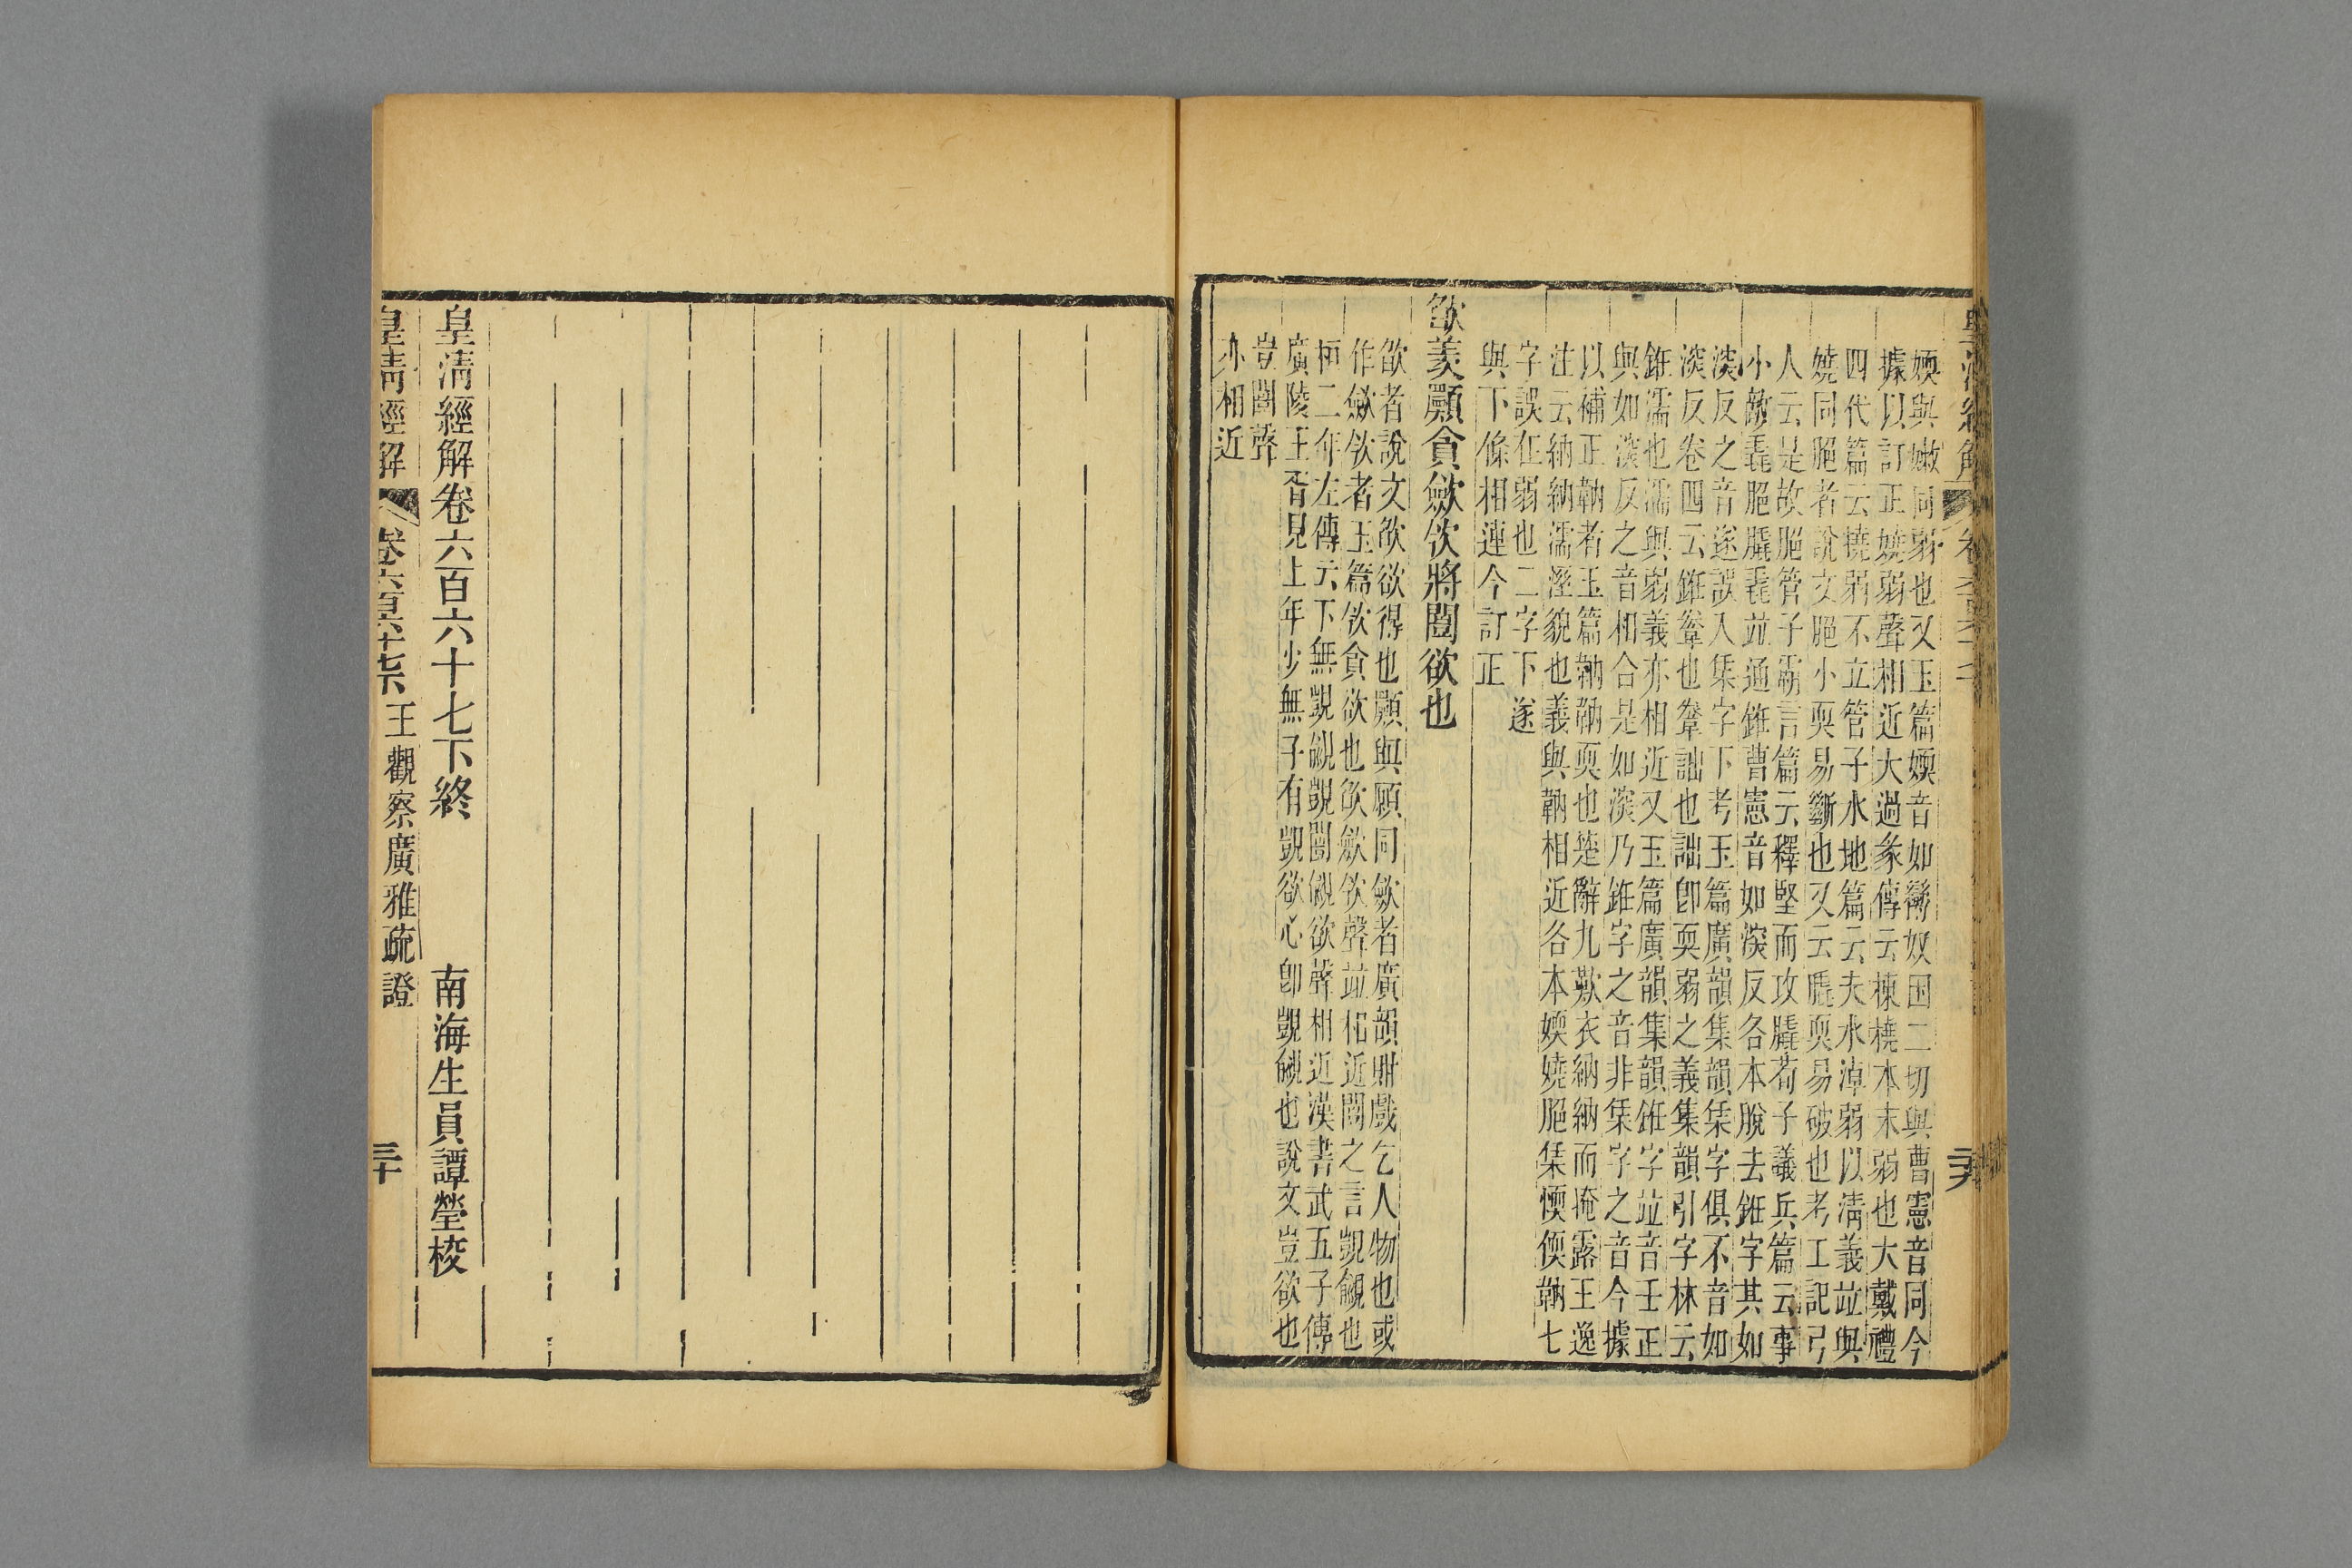 媆與嫩同弱也又玉篇媆音如臠奴困二切與曹憲音同今
據以訂正嬈弱聲相近大過彖傳云棟橈本末弱也大戴禮
四代篇云撓弱不立管子水地篇云夫水淖弱以淸義竝與
嬈同脃者說文脃小耎易斷也又云膬耎易破也考工記弓
人云是故脃管子霸言篇云釋堅而攻膬荀子議兵篇云事
小敵毳脃膬毳竝通錐曹憲音如深反各本脫去錐字其如
深反之音遂誤入栠字下考玉篇廣韻集韻栠字俱不音如
深反卷四云錐鞏也鞏詘也詘卽耎弱之義集韻引字林云
錐濡也濡與弱義亦相近又玉篇廣韻集韻錐字竝音壬正
與如深反之音相合是如深乃錐字之音非栠字之音今據
以補正靹者玉篇靹靹耎也楚辭九歎衣納納而掩露王逸
注云納納濡溼貌也義與靹相近各本媆嬈脃栠愞偄靹七
字誤在弱也二字下遂
與下條相連今訂正
欿羡願貪歛欦將闓欲也
欿者說文欿欲得也願與願同歛者廣韻㱃戲乞人物也或
作歛欦者玉篇欦貪欲也欿歛欦聲竝相近闓之言覬覦也
桓二年左傳云下無覬覦覬闓覦欲聲相近漢書武五子傳
廣陵王胥見上年少無子有覬欲心卽覬覦也說文豈欲也
豈闓聲
亦相近
皇淸經解卷六百六十七下終 南海生員譚瑩校
皇淸經解 卷六百六十七下 王觀察廣雅疏證 三十